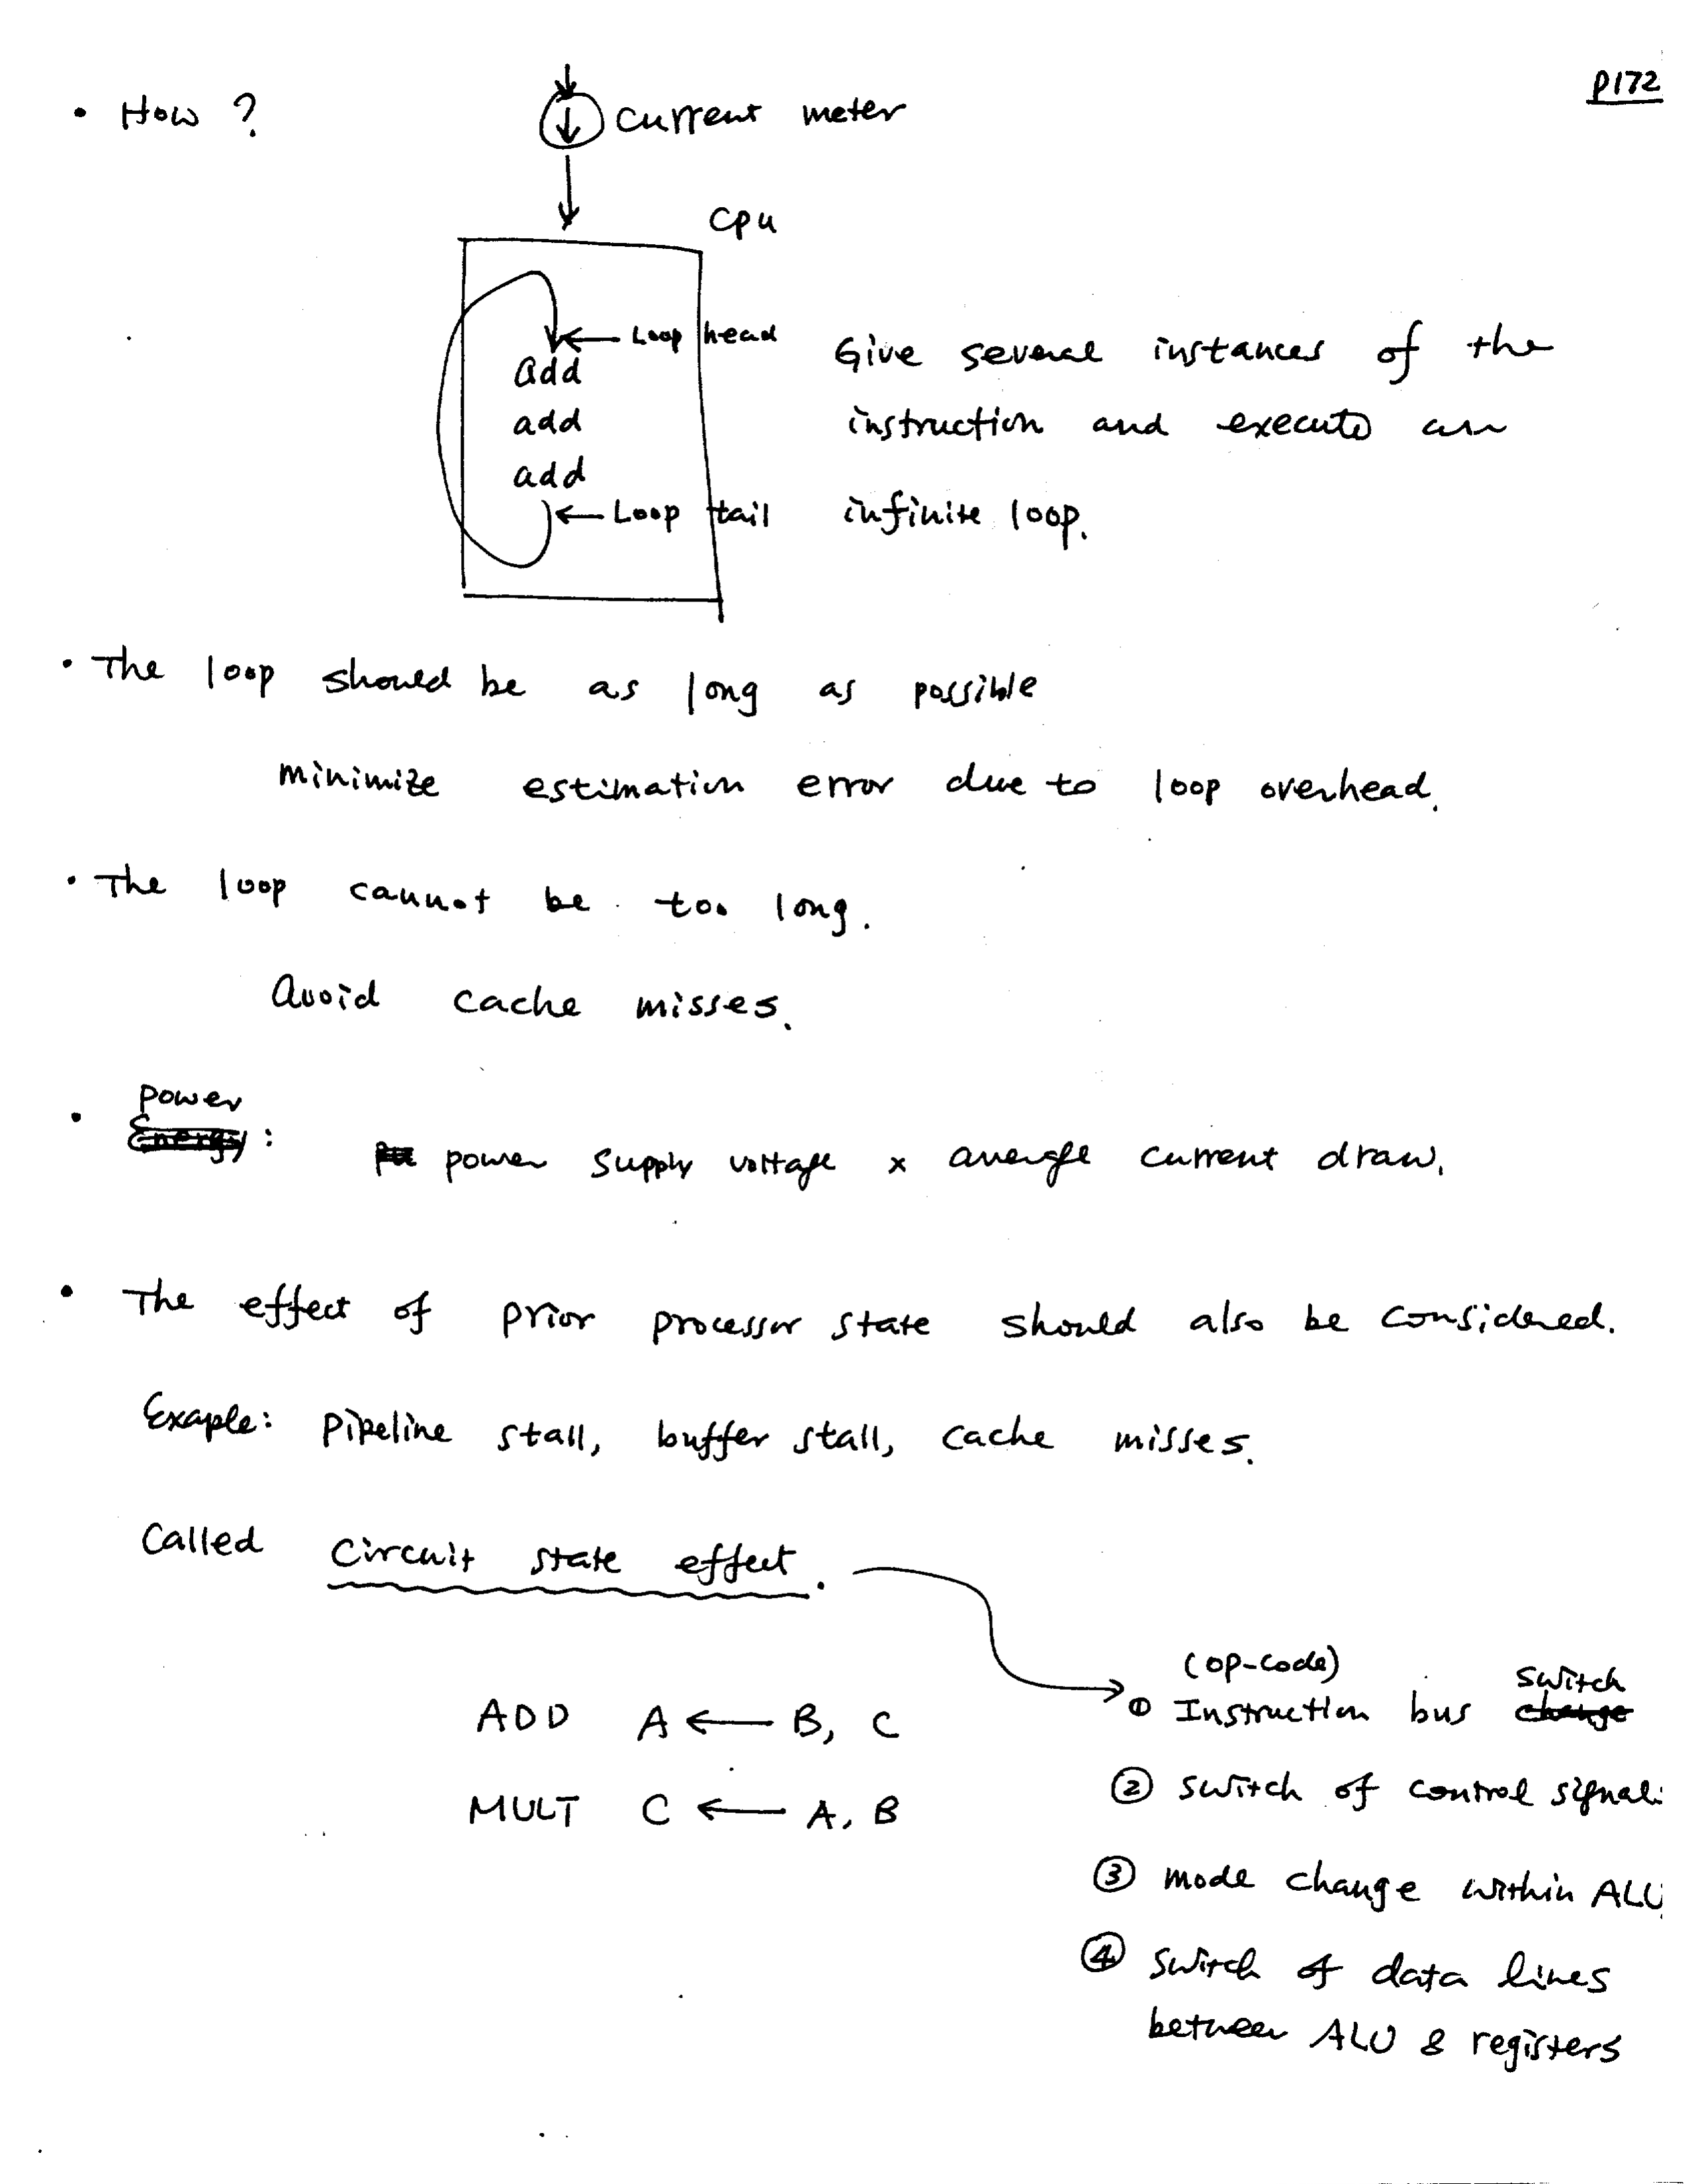 p172
• How ?
current meter
cpu
← Loop head
add
add
add
← Loop tail
Give several instances of the
instruction and execute an
infinite loop.
• The loop should be as long as possible
minimize estimation error due to loop overhead.
• The loop cannot be too long.
Avoid cache misses.
power
• Energy :
power supply voltage x average current draw.
• The effect of prior processor state should also be considered.
Exaple: Pipeline stall, buffer stall, cache misses.
Called Circuit state effect.
ADD A ← B, C
MULT C ← A, B
(op-code) switch
① Instruction bus change
② switch of control signal
③ mode change within ALU
④ switch of data lines
between ALU & registers